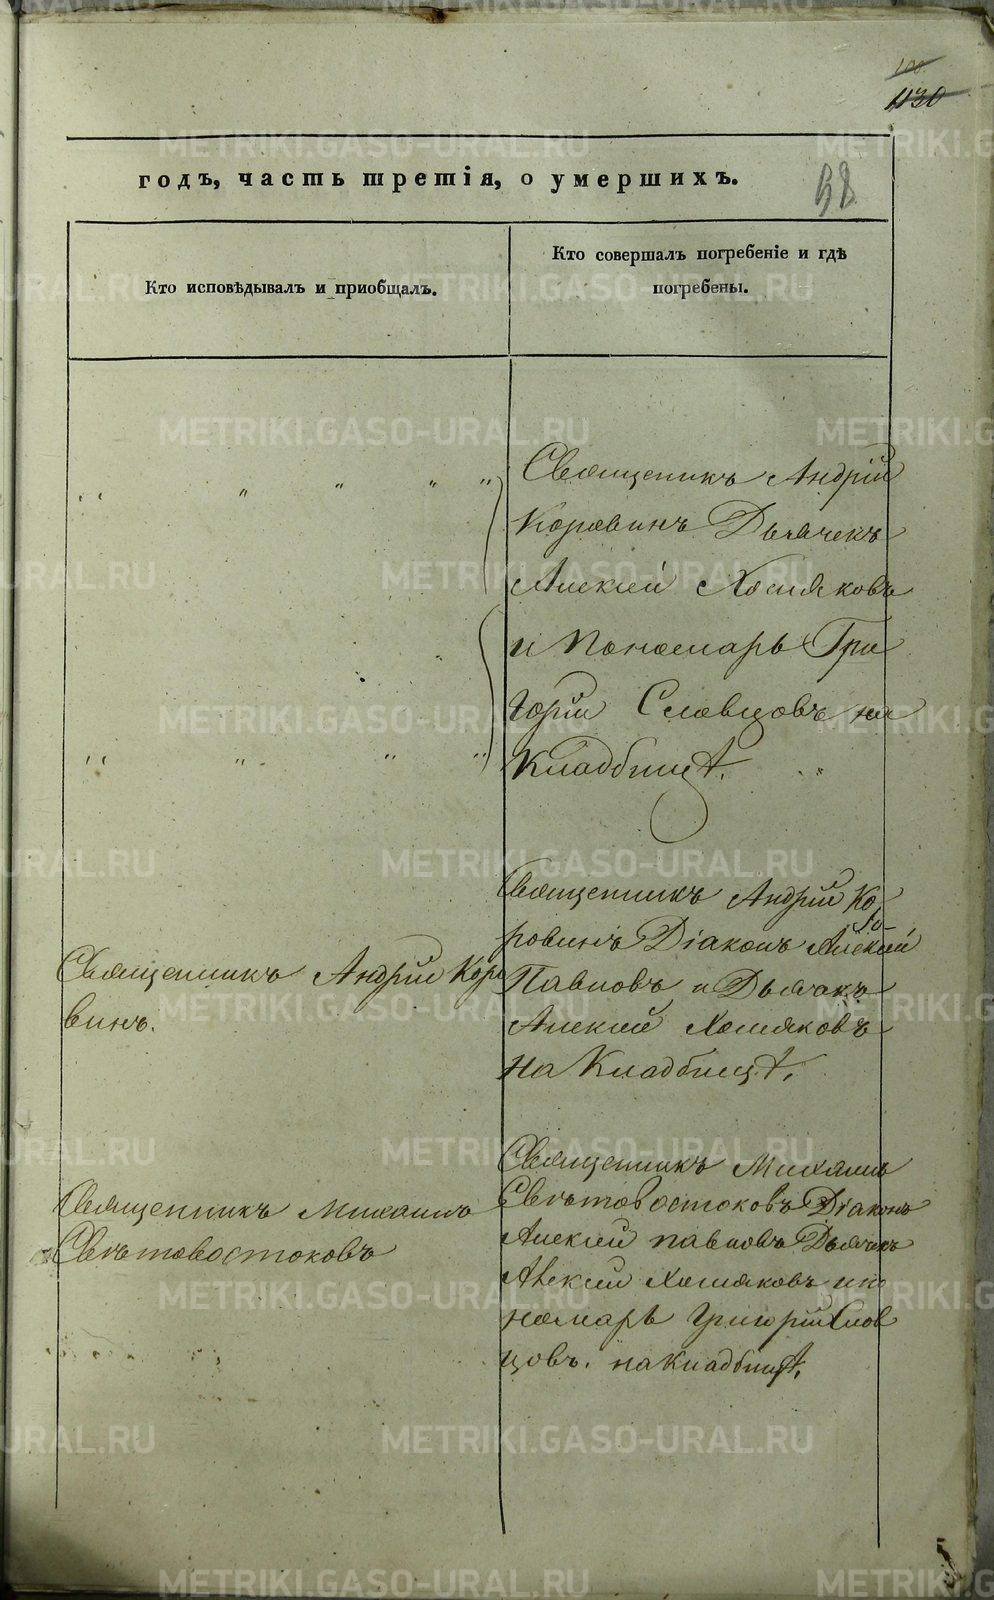 100.
1130
годъ, часть третія, о умершихъ.
Кто исповѣдывалъ и приобщалъ.
Кто совершалъ погребеніе и гдѣ
погребены.
Священикъ Андрій
Коровинъ Дьячекъ
Алексій Хомяковъ
и Пономарь Гри
горій Словцовъ на
Кладбищѣ.
Священникъ Андрій Коро
винъ.
Священникъ Андрій Ко
ровинъ Діаконъ Алексій
Павловъ и Дьячекъ
Алексій Хомяковъ
на Кладбищѣ.
Священникъ Михаилъ
Свѣтовостоковъ
Священникъ Михаилъ
Свѣтовостоковъ Діаконъ
Алексій Павловъ Дьячекъ
Алексій Хомяковъ и по
номарь Григорій Слов
цовъ. на Кладбищѣ.
METRIKI.GASO-URAL.RU